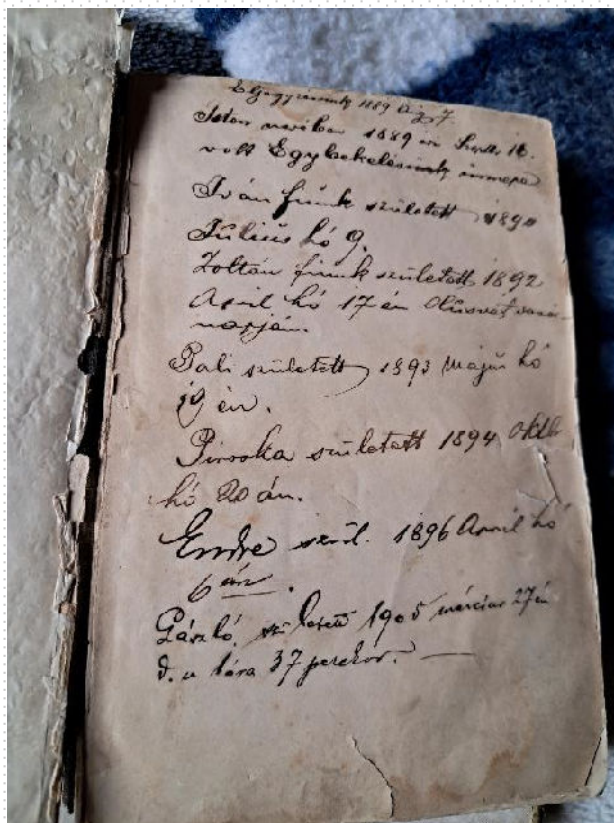 Eljegyzésünk 1889 Aug 7.
Isten nevében 1889 év Sept. 16.
volt Egybekelésünk ünnepe
Iván fiunk született 1890
Július hó 9.
Zoltán fiunk született 1892
April hó 17 én Húsvét vasár-
napján.
Pali született 1893 május hó
19 én.
Piroska született 1894 Októb
hó 20 án.
Endre szül. 1896 April hó
6 án.
László, született 1905 március 27 én
d. u 1 óra 37 perckor.